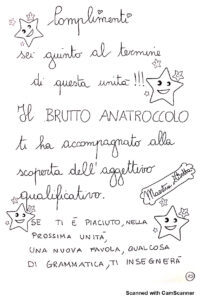 Complimenti
sei giunto al termine
di questa unità!!!
Il BRUTTO ANATROCCOLO
ti ha accompagnato alla
scoperta dell'aggettivo
qualificativo.
Maestra
SE TI È PIACIUTO, NELLA
PROSSIMA UNITÀ,
UNA NUOVA FAVOLA, QUALCOSA
DI GRAMMATICA, TI INSEGNERÀ
Scanned with CamScanner